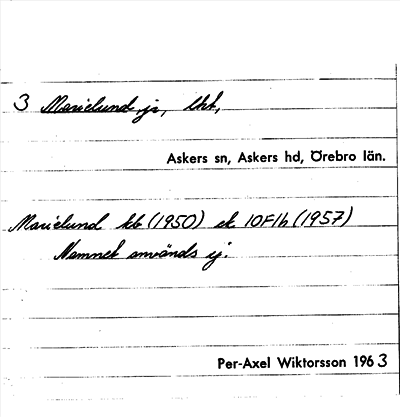 3 Marielund, ja, lht,
Askers sn, Askers hd, Örebro län.
Marielund kb (1950) ek 10F1h (1957)
Namnet används ej.
Per-Axel Wiktorsson 1963